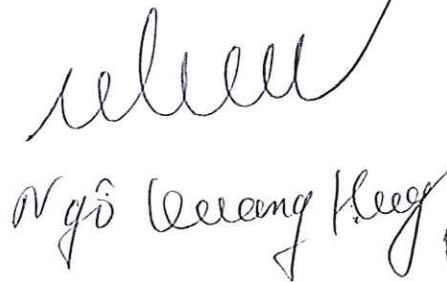 Ngô Quang Huy